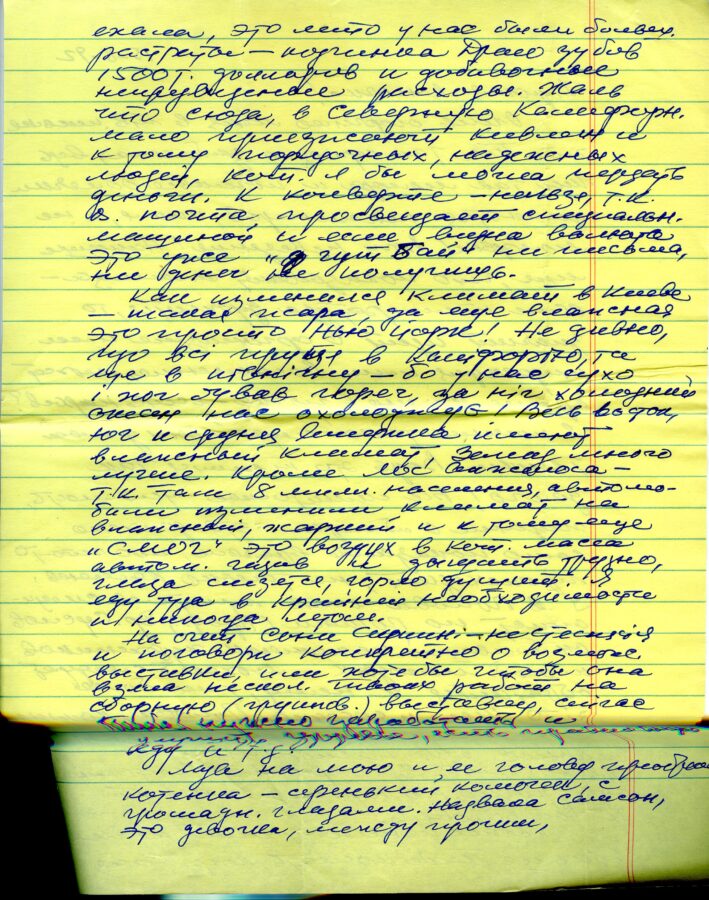 ехала, это лето у нас были больш.
растраты — починка Драго зубов
1500 т. долларов и добавочные
непредвиденные расходы. Жаль
что сюда, в Северную Калифорн.
мало приезжают киевлян и
к тому порядочных, надежных
людей, кот. я бы могла передать
деньги. К конверте — нельзя, т.к.
а. почта просвещает специальн.
машиной, и если видна валюта
это уже "гут бай" ни письма,
ни денег не получишь.
Как изменился климат в Киеве
— такая жара, да еще влажная
это просто Нью Йорк! Не дивно,
що всі пруться в Каліфорнію, та
ще в північну — бо у нас сухо
і хоч буває гореч, за ніч холодний
океан нас охолоджує! Весь восток,
юг и средняя Америка имеют
влажный климат, Запад много
лучше. Кроме Лос Анжелоса —
т.к. там 8 милл. населения, автомо-
били изменили климат на
влажный, жаркий и к тому-еще
"СМОГ" это воздух в кот. масса
автом. газов и дышать трудно,
глаза слезятся, горло душит! Я
еду туда в крайней необходимости
и никогда летом.
На счет Сони — не стесняйся
и поговори конкретно о возможн.
выставки, или хотя бы чтобы она
взяла нескол. твоих работ на
сборную (групов.) выставку, сейчас
нужно заработать и
еду и т.д.
Лиза на мою и ее голову приобрела
котенка — серенький комочек, с
громадн. глазами. Назвала Самсон,
это девочка, между прочим,